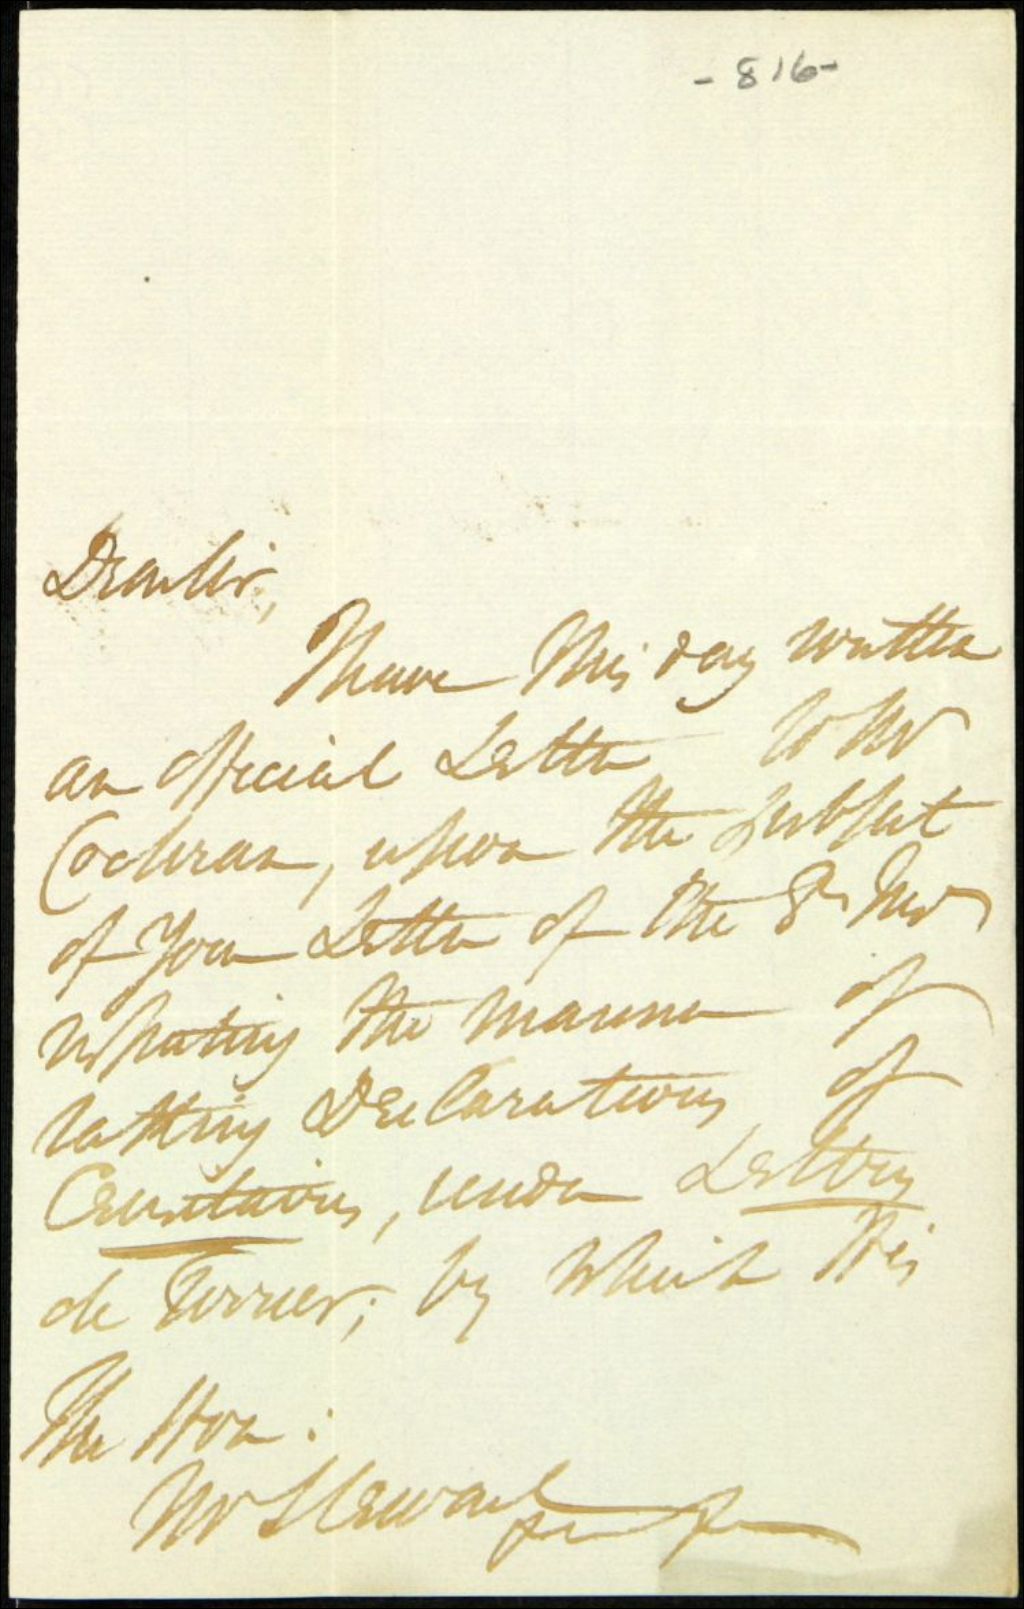 - 816 -
Dear Sir,
I have this day written
an official Letter to Mr
Cochran, upon the subject
of Your Letter of the 8th
respecting the manner of
taking Declarations of
Censitaires, under Lettres
de Terrier; by which this
The Hon:
Mr Stewart